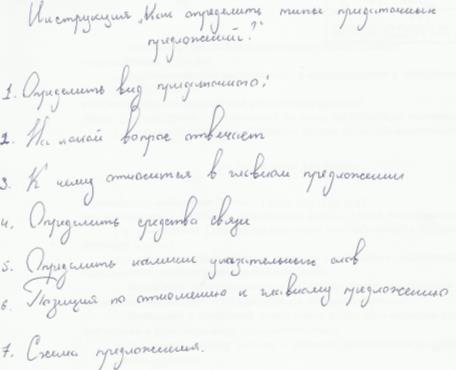 Инструкция „Как определить типы придаточных
предложений?"
1. Определить вид придаточного:
2. На какой вопрос отвечает
3. К чему относится в главном предложении
4. Определить средства связи
5. Определить наличие указательных слов
6. Позиция по отношению к главному предложению
7. Схема предложения.